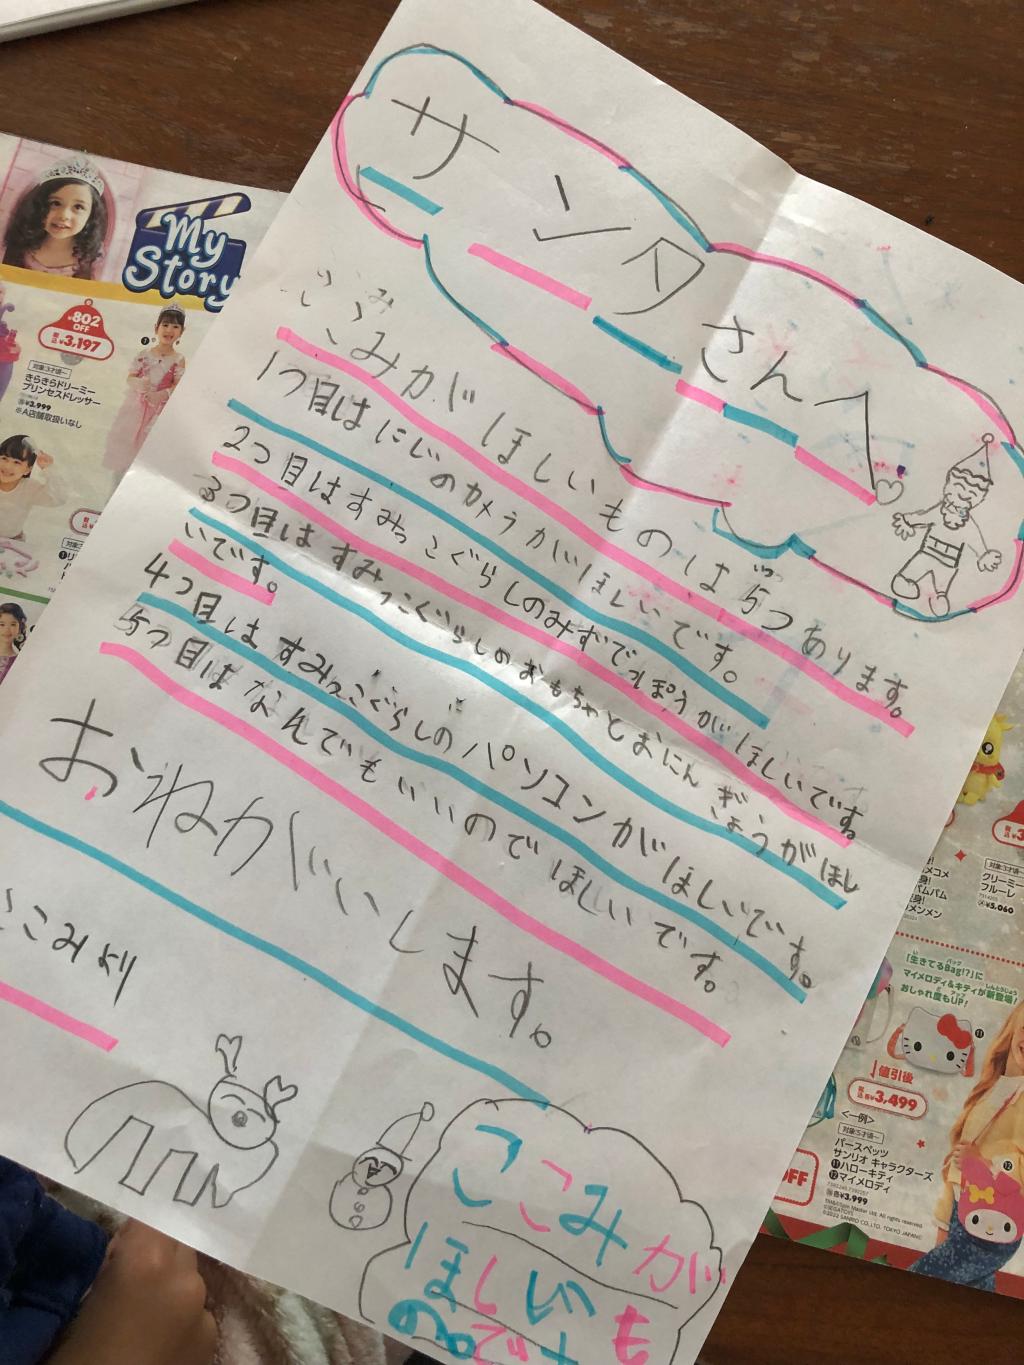 サンタさんへ
ここみがほしいものは5つあります。
1つ目はにじのカメラがほしいです。
2つ目はすみっこぐらしのみずでっぽうがほしいです。
3つ目はすみっこぐらしのおもちゃとおにんぎょうがほし
いです。
4つ目はすみっこぐらしのパソコンがほしいです。
5つ目はなんでもいいのでほしいです。
おねがいします。
ここみより
ここみが
ほしいも
のです
My
Story
¥802
OFF
¥3,197
対象:3才頃~
きらきらドリーミー
プリンセスドレッサー
¥3,999
※A店舗取扱いなし
クリーミー
フルーレ
¥5,060
「生きてるBag!?」に
マイメロディ&キティが新登場!
おしゃれ度もUP!
値引後
¥3,499
<一例>
対象:5才頃~
パースペッツ
サンリオ キャラクターズ
⑪ハローキティ
⑫マイメロディ
各¥3,999
OFF